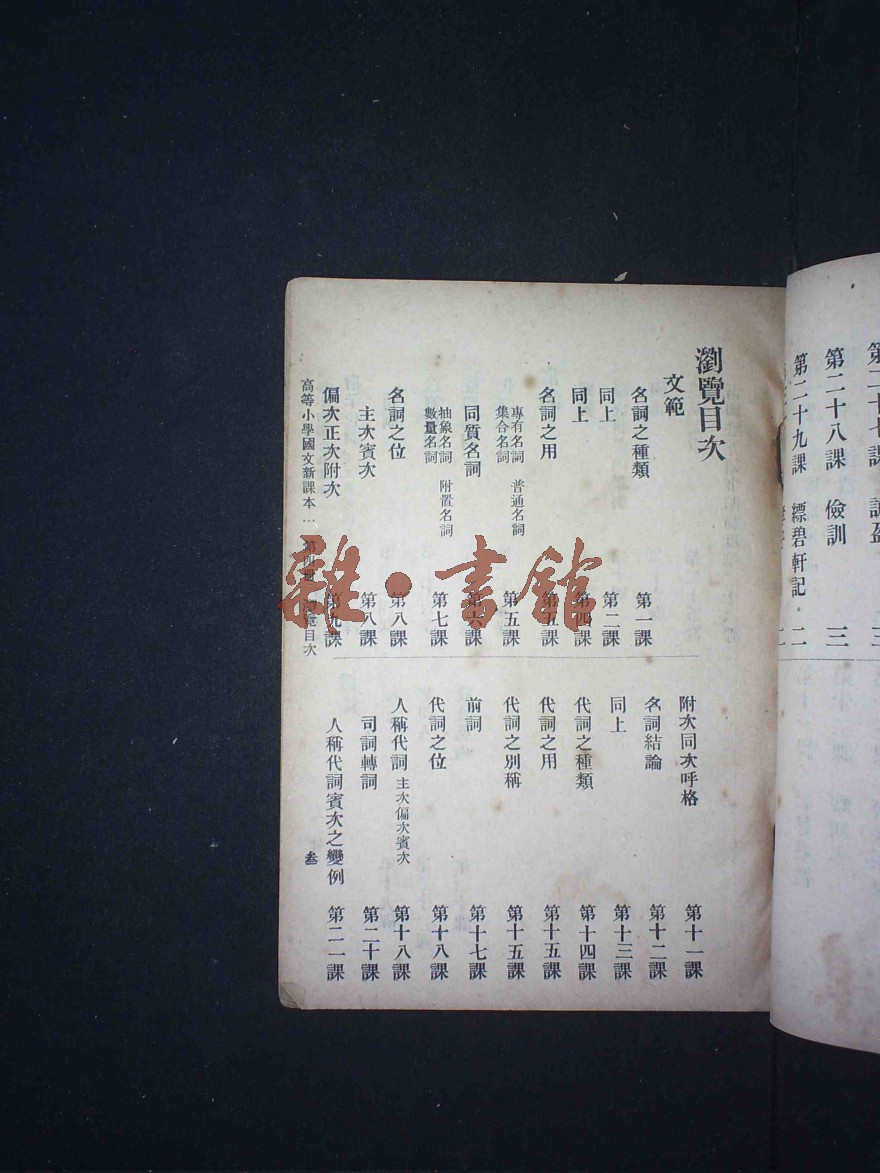 第二十八課　儉訓　三
第二十九課　縹碧軒記　二
瀏覽目次
文範
名詞之種類　第一課
同上　第二課
同上　第四課
名詞之用　第五課
專有名詞　普通名詞
集合名詞　第五課
同質名詞　第六課
抽象名詞　附置名詞
數量名詞　第七課
名詞之位　第八課
主次賓次　第八課
偏次正次附次　第九課
附次同次呼格　第十一課
名詞結論　第十二課
同上　第十三課
代詞之種類　第十四課
代詞之用　第十五課
代詞之別稱　第十五課
前詞　第十七課
代詞之位　第十八課
人稱代詞　主次偏次賓次　第十八課
司詞轉詞　第二十課
人稱代詞賓次之變例　第二一課
高等小學國文新課本　第四冊　瀏覽目次　叁
雜·書館